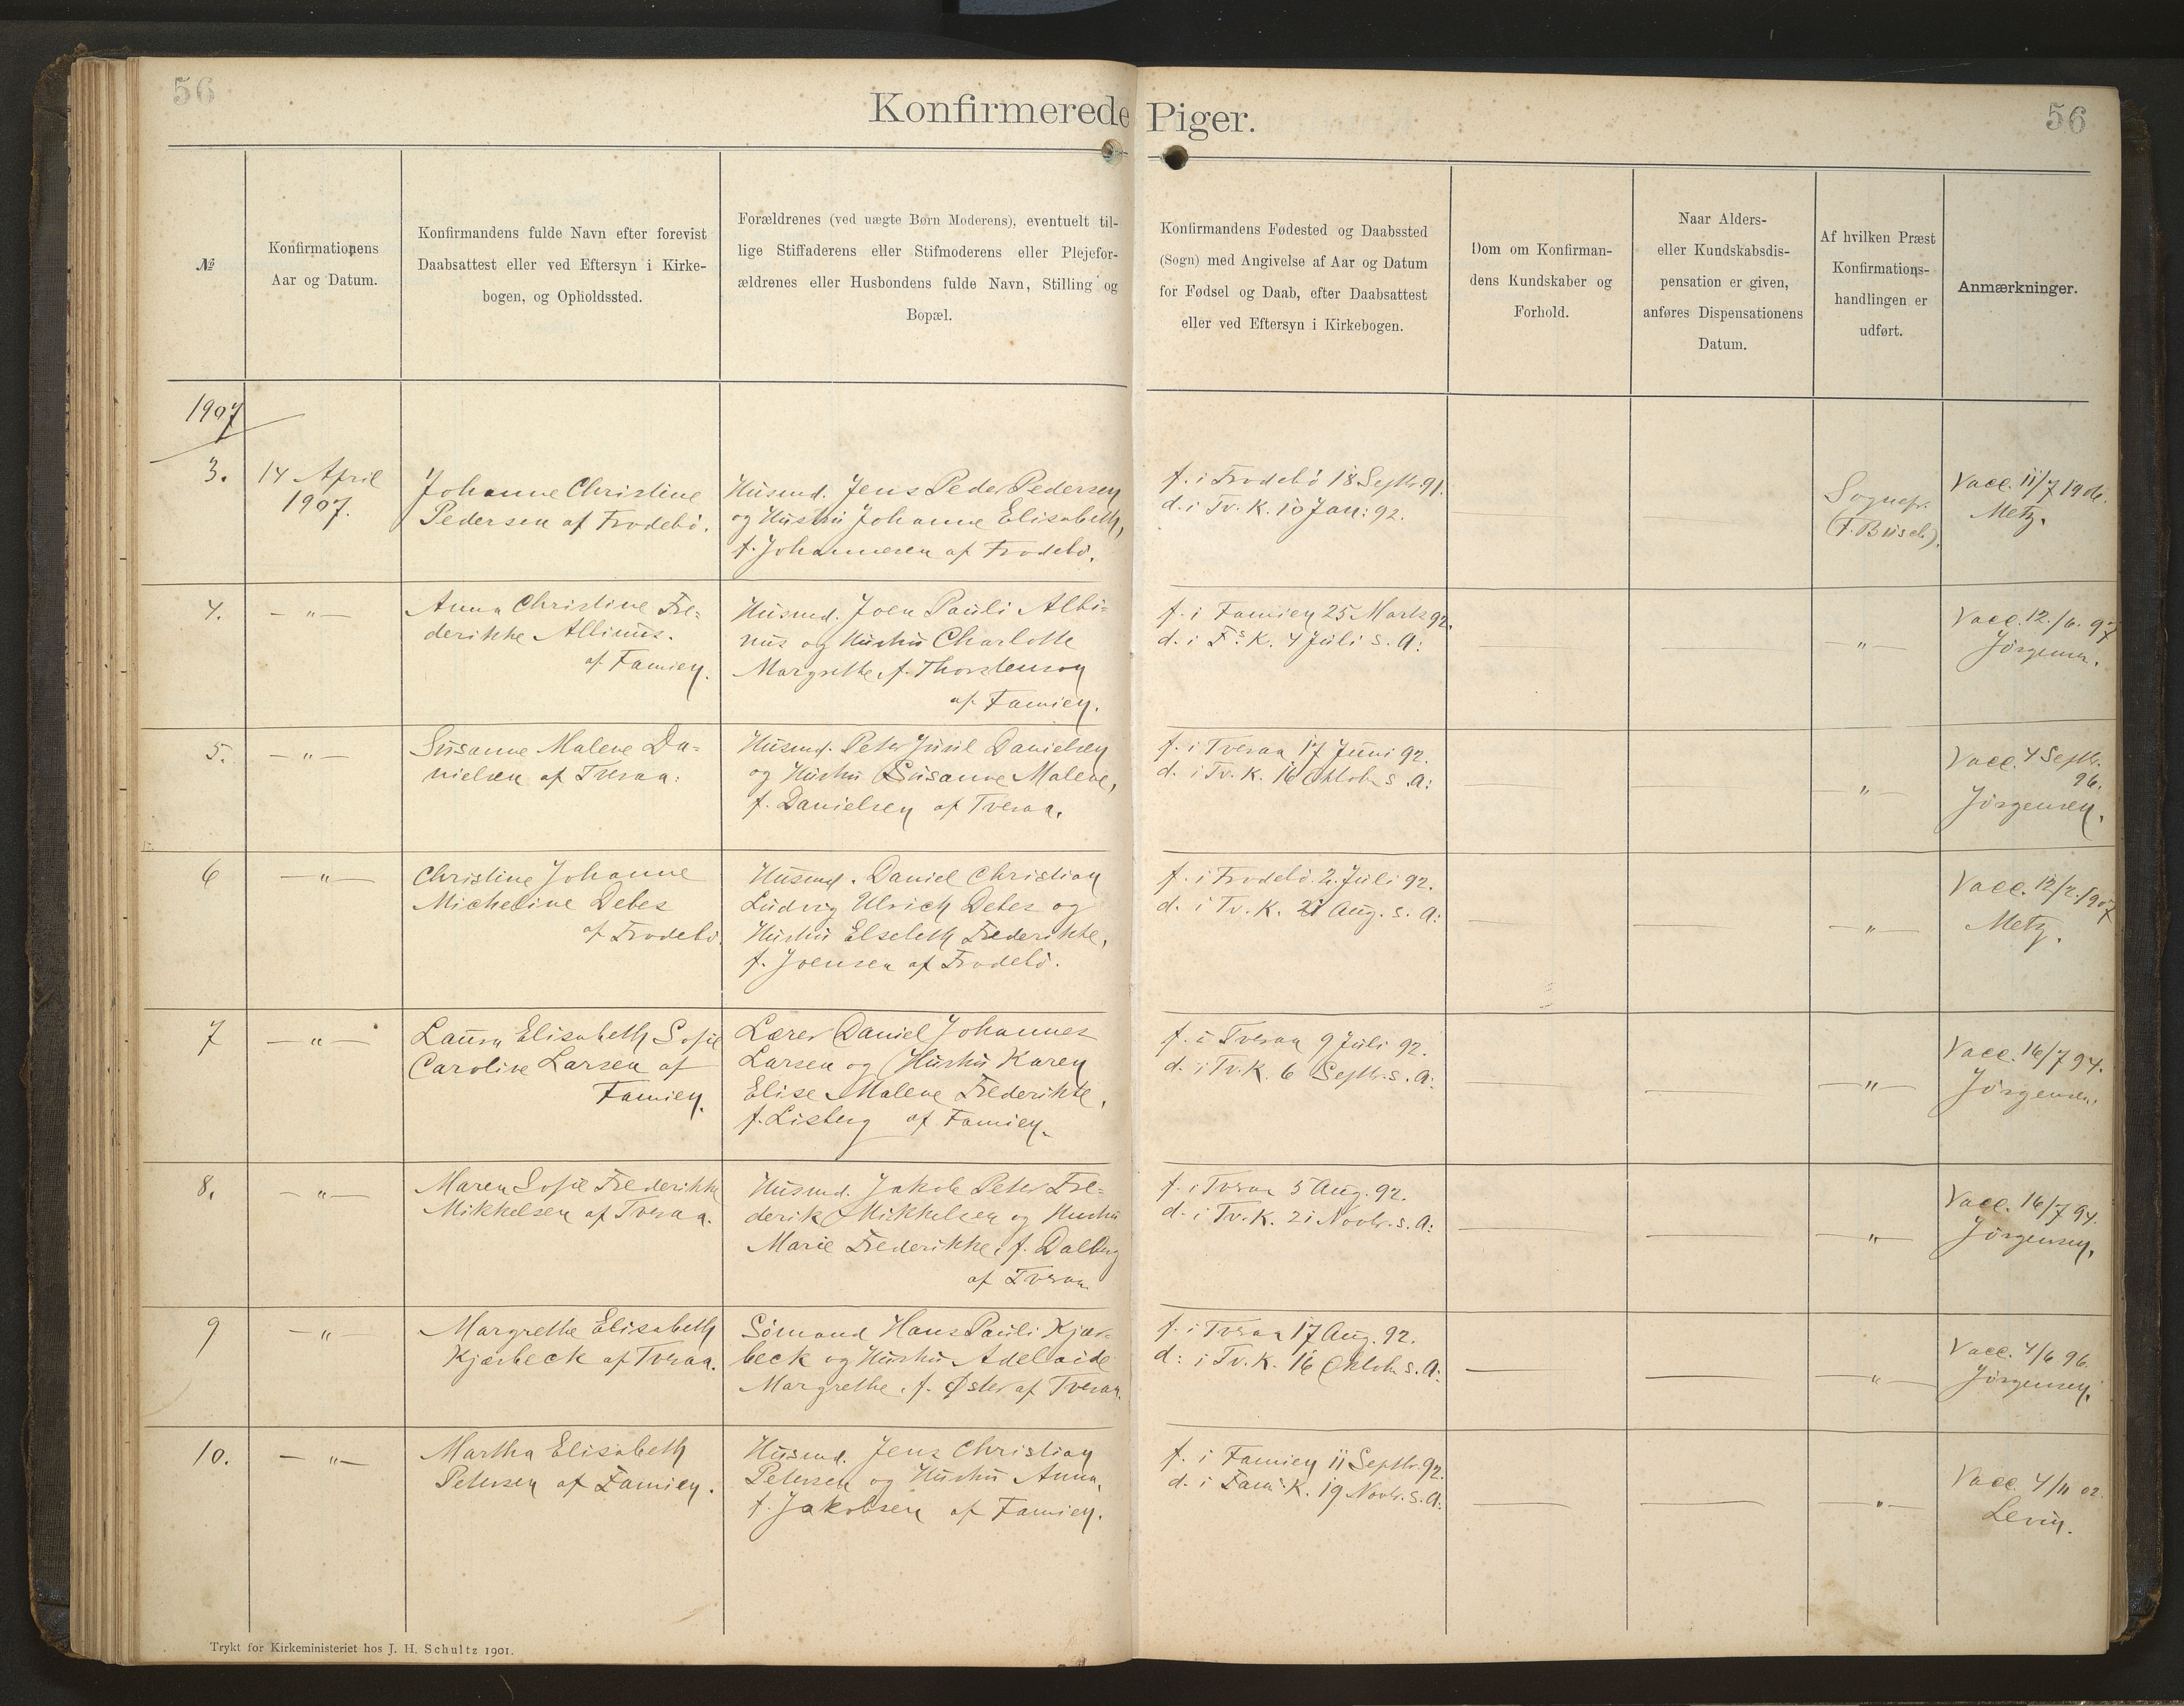 56
Konfirmerede Piger.
56
№
Konfirmationens
Aar og Datum.
Konfirmandens fulde Navn efter forevist
Daabsattest eller ved Eftersyn i Kirke-
bogen, og Opholdssted.
Forældrenes (ved uægte Børn Moderens), eventuelt til-
lige Stiffaderens eller Stifmoderens eller Plejefor-
ældrenes eller Husbondens fulde Navn, Stilling og
Bopæl.
Konfirmandens Fødested og Daabssted
(Sogn) med Angivelse af Aar og Datum
for Fødsel og Daab, efter Daabsattest
eller ved Eftersyn i Kirkebogen.
Dom om Konfirman-
dens Kundskaber og
Forhold.
Naar Alders-
eller Kundskabsdis-
pensation er given,
anføres Dispensationens
Datum.
Af hvilken Præst
Konfirmations-
handlingen er
udført.
Anmærkninger.
1907
3.
14 April
1907.
Johanne Christine
Pedersen af Frodebö.
Husmd. Jens Peder Pedersen
og Hustru Johanne Elisabeth,
f. Johannesen af Frodebö.
f. i Frodebö 18 Septbr. 91.
d. i Tv. K. 10 Jan: 92.
Sognepr.
(F. Büsch).
Vacc. 11/7 1906.
Metz.
4.
— " —
Anna Christine Fre-
derikke Albinus.
af Famien.
Husmd. Joen Pauli Albi-
nus og Hustru Charlotte
Margrethe, f. Thorstenson
af Famien.
f. i Famien 25 Marts 92.
d. i Fs. K. 4 Juli s. A:
— " —
Vacc. 12./6. 97
Jörgensen.
5.
— " —
Susanne Malene Da-
nielsen af Tveraa.
Husmd. Peter Jusil Danielsen
og Hustru Susanne Malene,
f. Danielsen af Tveraa.
f. i Tveraa 17 Juni 92.
d. i Tv. K. 16 Oktob. s. A:
— " —
Vacc. 4 Septbr.
96.
Jörgensen.
6
— " —
Christine Johanne
Micheline Debes
af Frodebö.
Husmd. Daniel Christian
Ludvig Ulrich Debes og
Hustru Elsebeth Frederikke,
f. Joensen af Frodebö.
f. i Frodebö 2. Juli 92.
d. i Tv. K. 21 Aug. s. A:
— " —
Vacc. 12/2. 1907
Metz.
7
— " —
Laura Elisabeth Sofie
Caroline Larsen af
Famien.
Lærer Daniel Johannes
Larsen og Hustru Karen
Elise Malene Frederikke,
f. Lisberg af Famien.
f. i Tveraa 9 Juli 92.
d. i Tv. K. 6 Septbr. s. A:
— " —
Vacc. 16/7 94.
Jörgensen.
8.
— " —
Maren Sofie Frederikke
Mikkelsen af Tveraa.
Husmd. Jakob Peter Fre-
derik Mikkelsen og Hustru
Marie Frederikke, f. Dalberg
af Tveraa
f. i Tveraa 5 Aug. 92.
d. i Tv. K. 21 Novbr. s. A:
— " —
Vacc. 16/7 94.
Jörgensen.
9
— " —
Margrethe Elisabeth
Kjærbeck af Tveraa.
Sömand Hans Pauli Kjær-
beck og Hustru Adelaide
Margrethe, f. Øster af Tveraa.
f. i Tveraa 17 Aug. 92.
d: i Tv. K. 16 Oktob. s. A:
— " —
Vacc. 4/6 96.
Jörgensen.
10.
— " —
Martha Elisabeth
Petersen af Famien.
Husmd. Jens Christian
Petersen og Hustru Anna,
f. Jakobsen af Famien.
f. i Famien 11 Septbr. 92.
d. i Fam. K. 19 Novbr. s. A:
— " —
Vacc. 4/11 02.
Levin.
Trykt for Kirkeministeriet hos J. H. Schultz 1901.